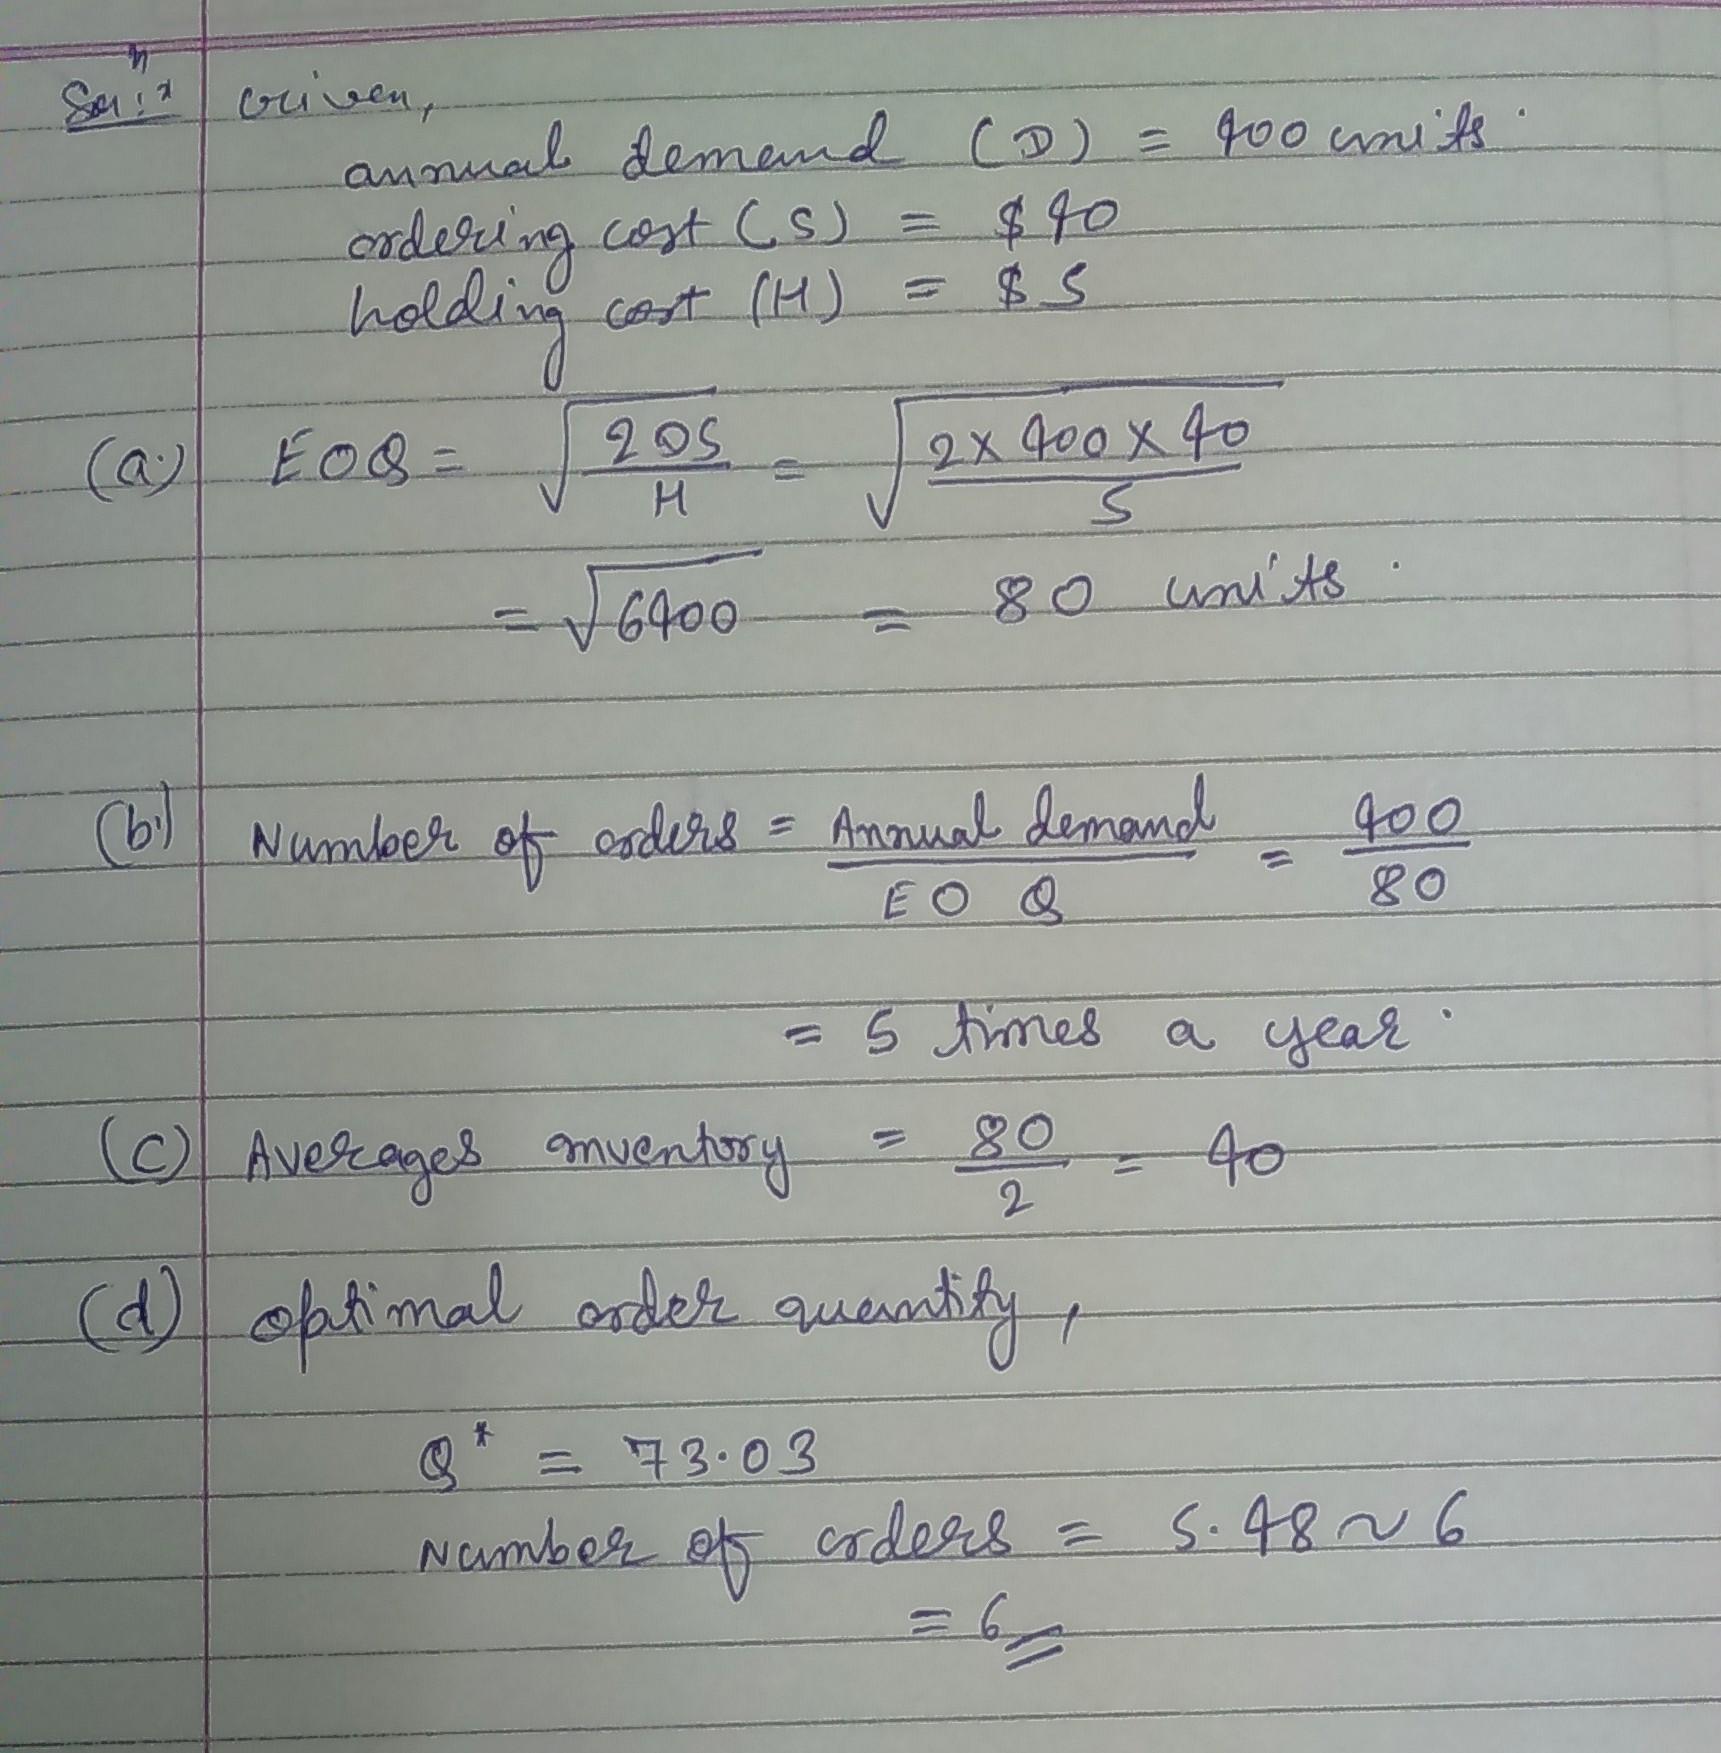 Soln:
Given,
annual demand (D) = 400 units.
ordering cost (S) = $40
holding cost (H) = $5
(a.) EOQ = √(2DS/H) = √(2×400×40/5)
= √6400 = 80 units.
(b.) Number of orders = Annual demand/EOQ = 400/80
= 5 times a year.
(c) Averages inventory = 80/2 = 40
(d) optimal order quantity,
Q* = 73.03
Number of orders = 5.48 ~ 6
= 6